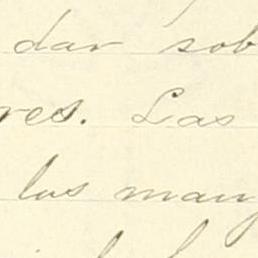 dar sob
res. Las
las man